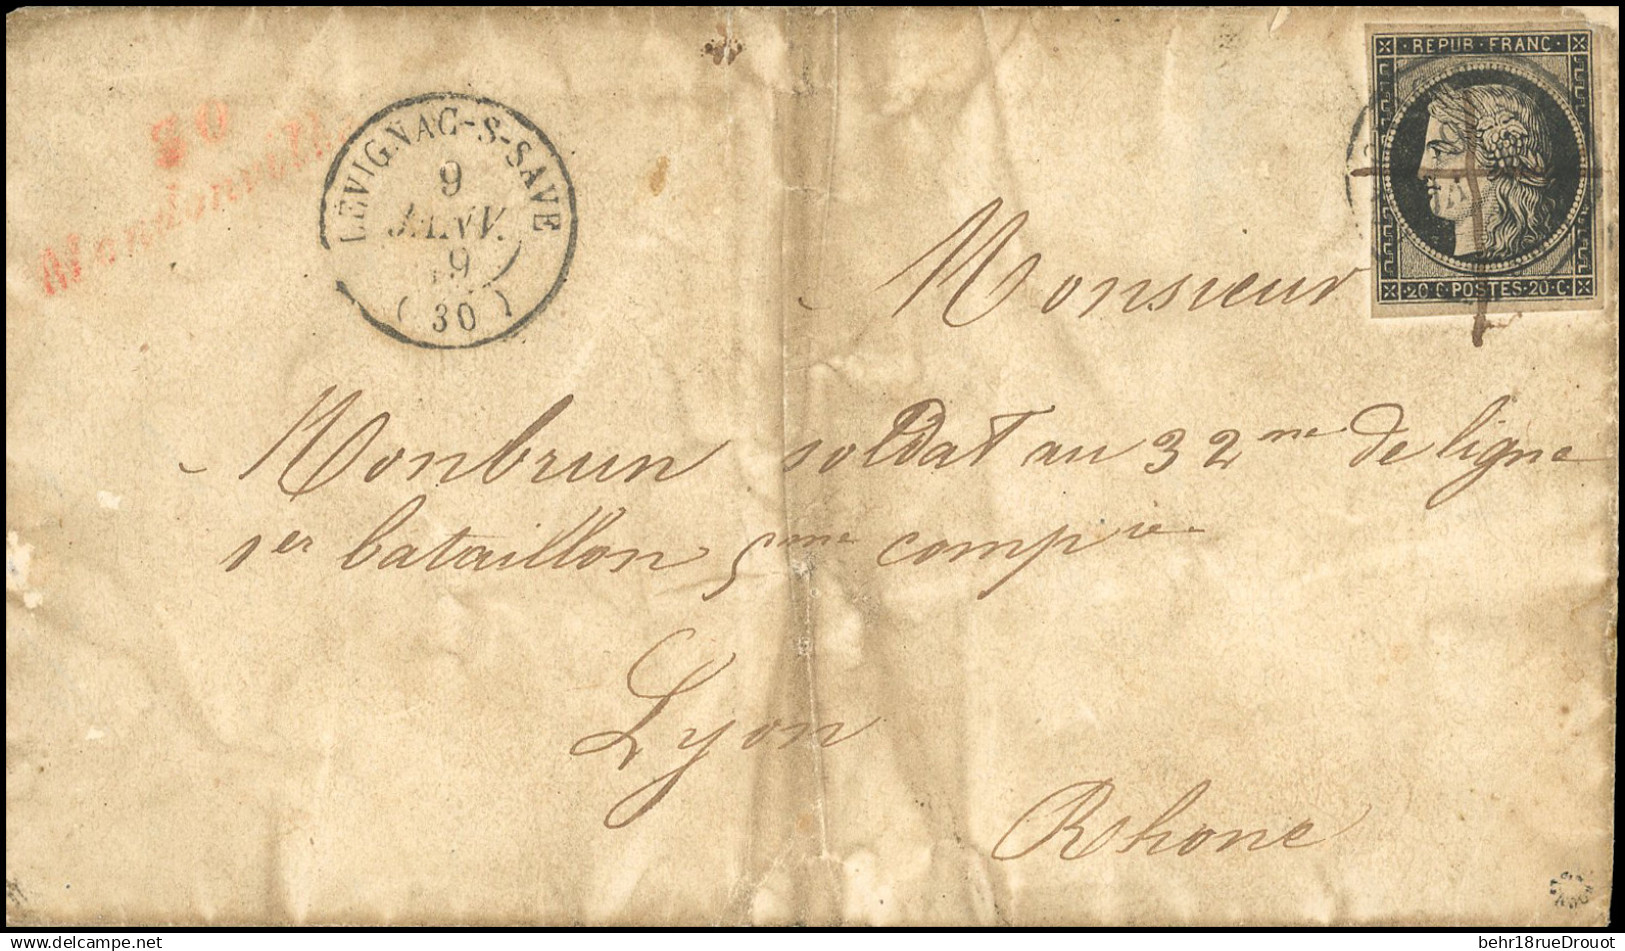 REPUB · FRANC ·
· 20 · C · POSTES · 20 · C ·
30
Mondonville
LÉVIGNAC-S-SAVE
9
JANV.
(30)
Monsieur
Monbrun soldat au 32me de ligne
1er bataillon 5me compie
Lyon
Rhone
delcampe.net
behr18rueDrouot